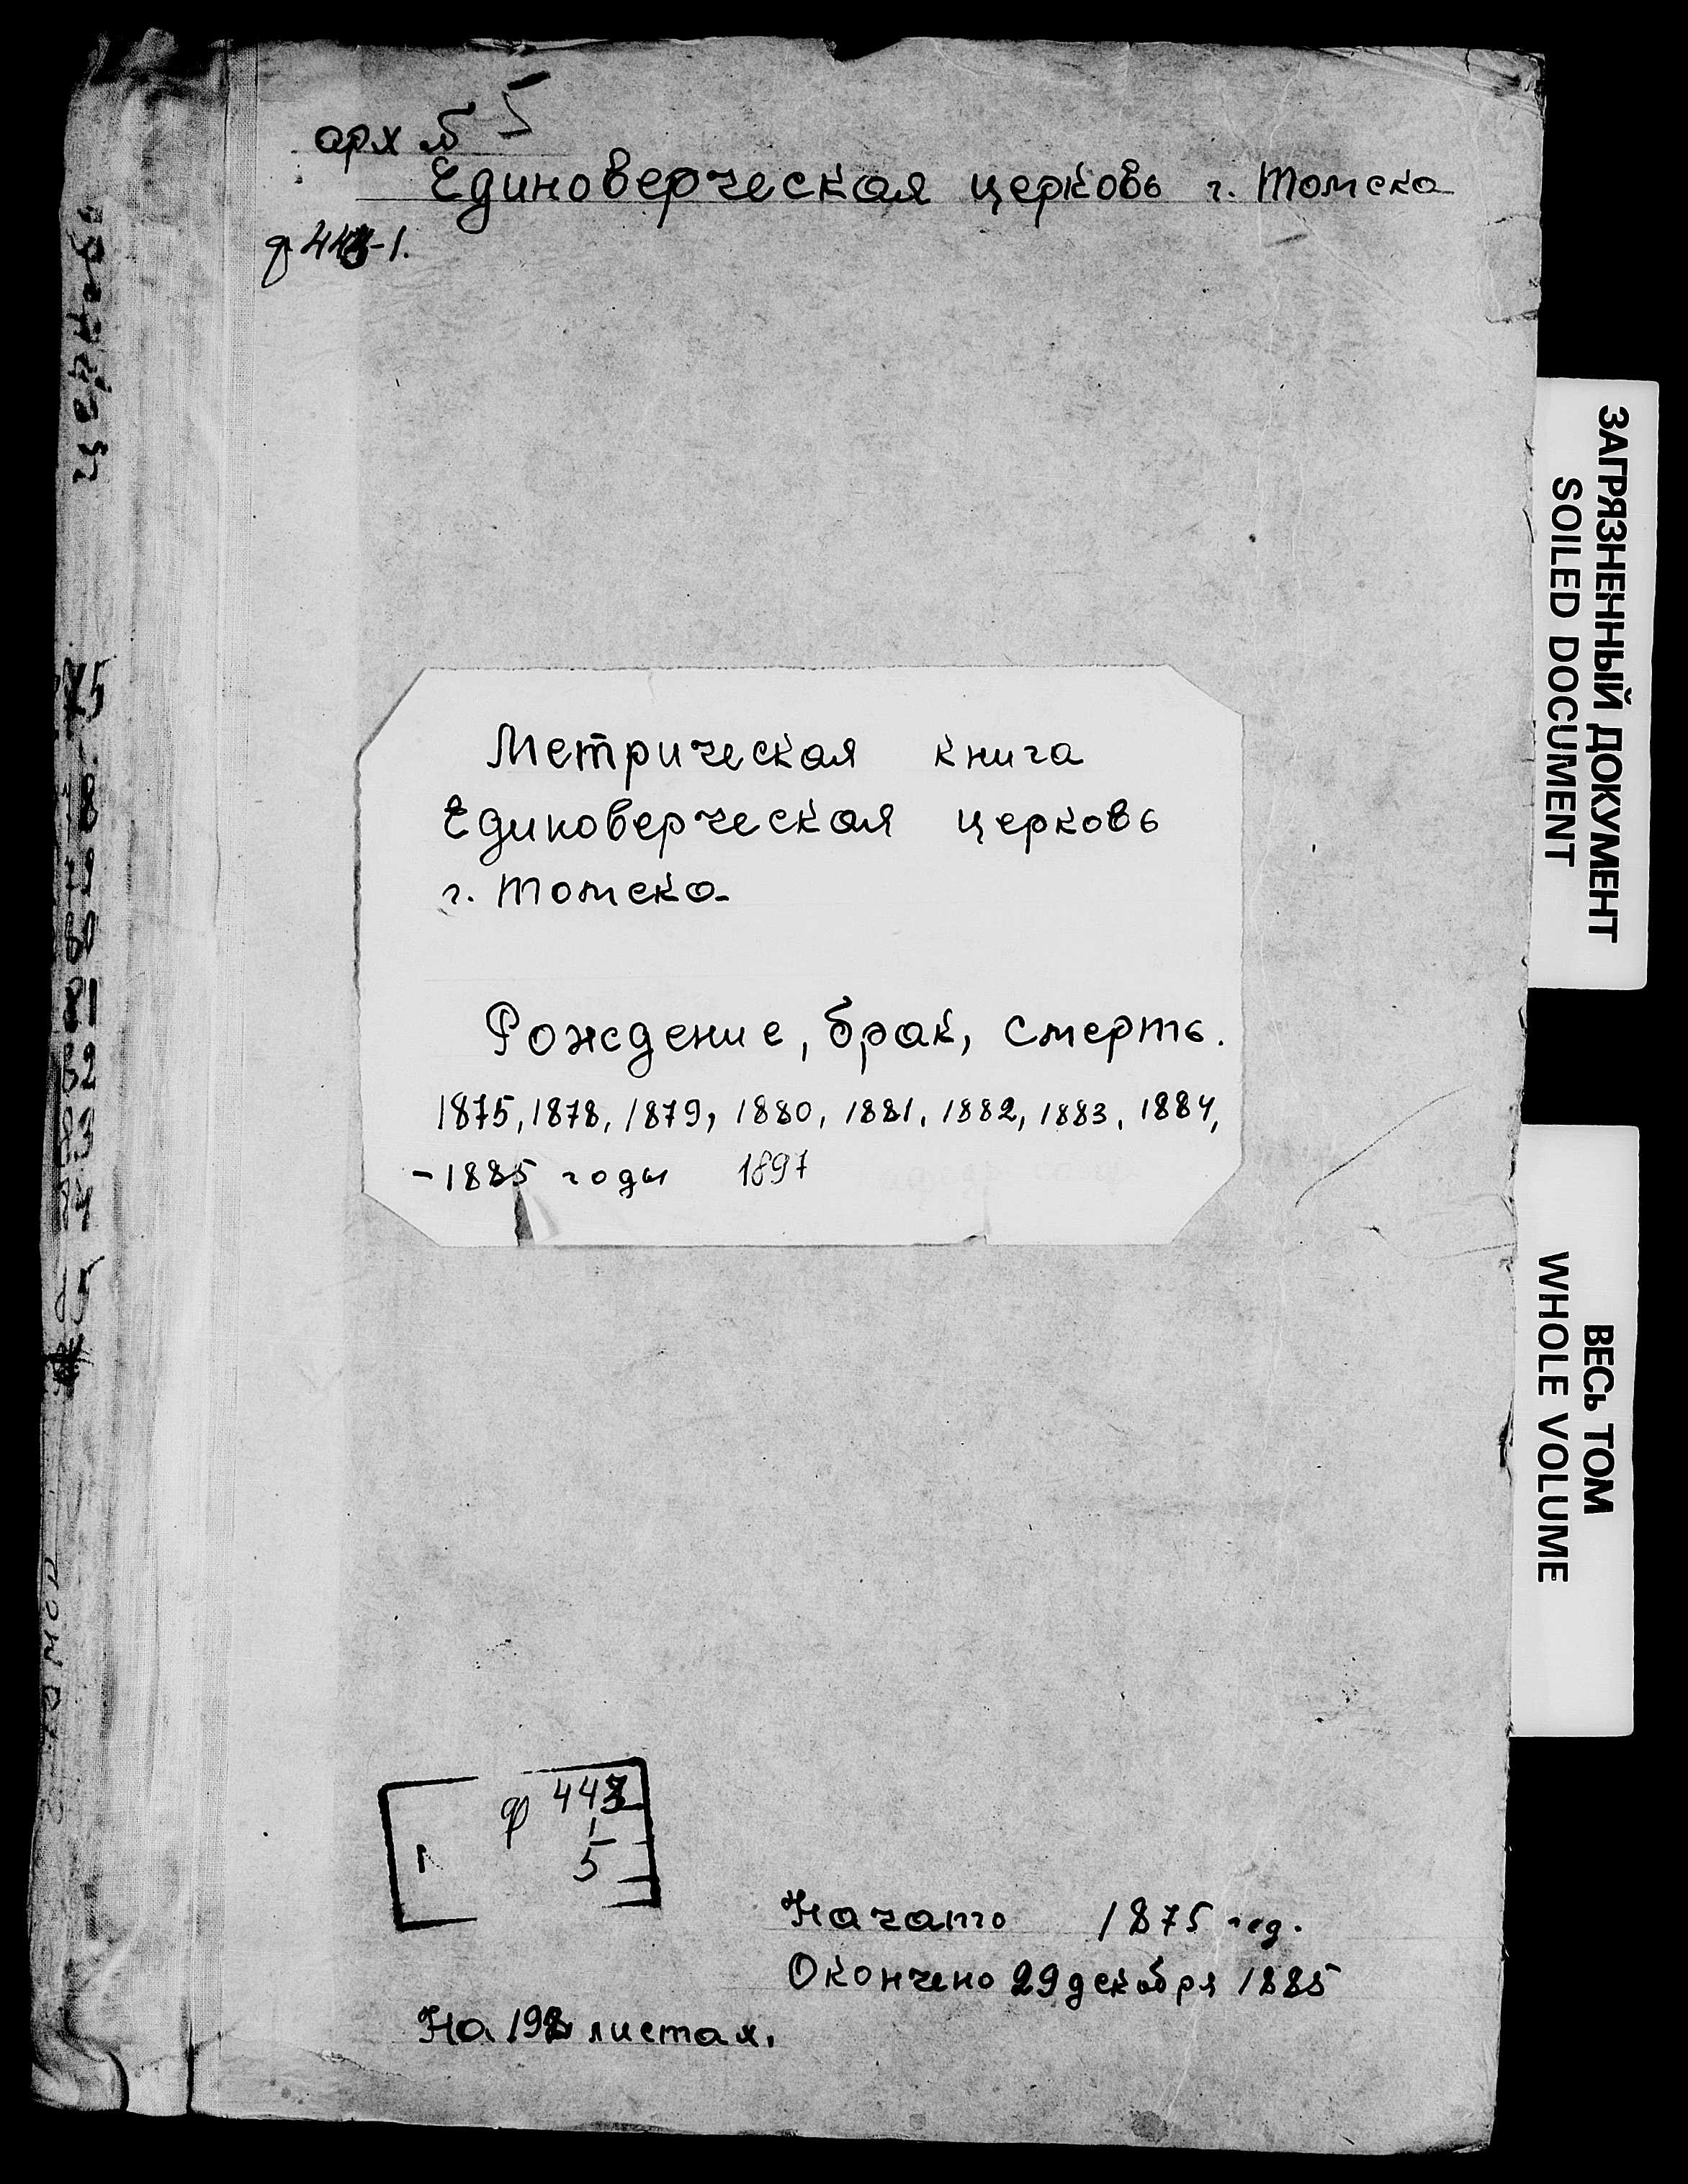 арх № 5
Единоверческая церковь г. Томска
ф 443-1.
Метрическая книга
Единоверческая церковь
г. Томска
Рождение, брак, смерть.
1875, 1878, 1879, 1880, 1881, 1882, 1883, 1884,
-1885 годы 1897
ф 443
1
5
Начато 1875 год.
Окончено 29 декабря 1885
На листах.
75
78
79
80
81
82
83
84
85
ЗАГРЯЗНЕННЫЙ ДОКУМЕНТ
SOILED DOCUMENT
ВЕСЬ ТОМ
WHOLE VOLUME